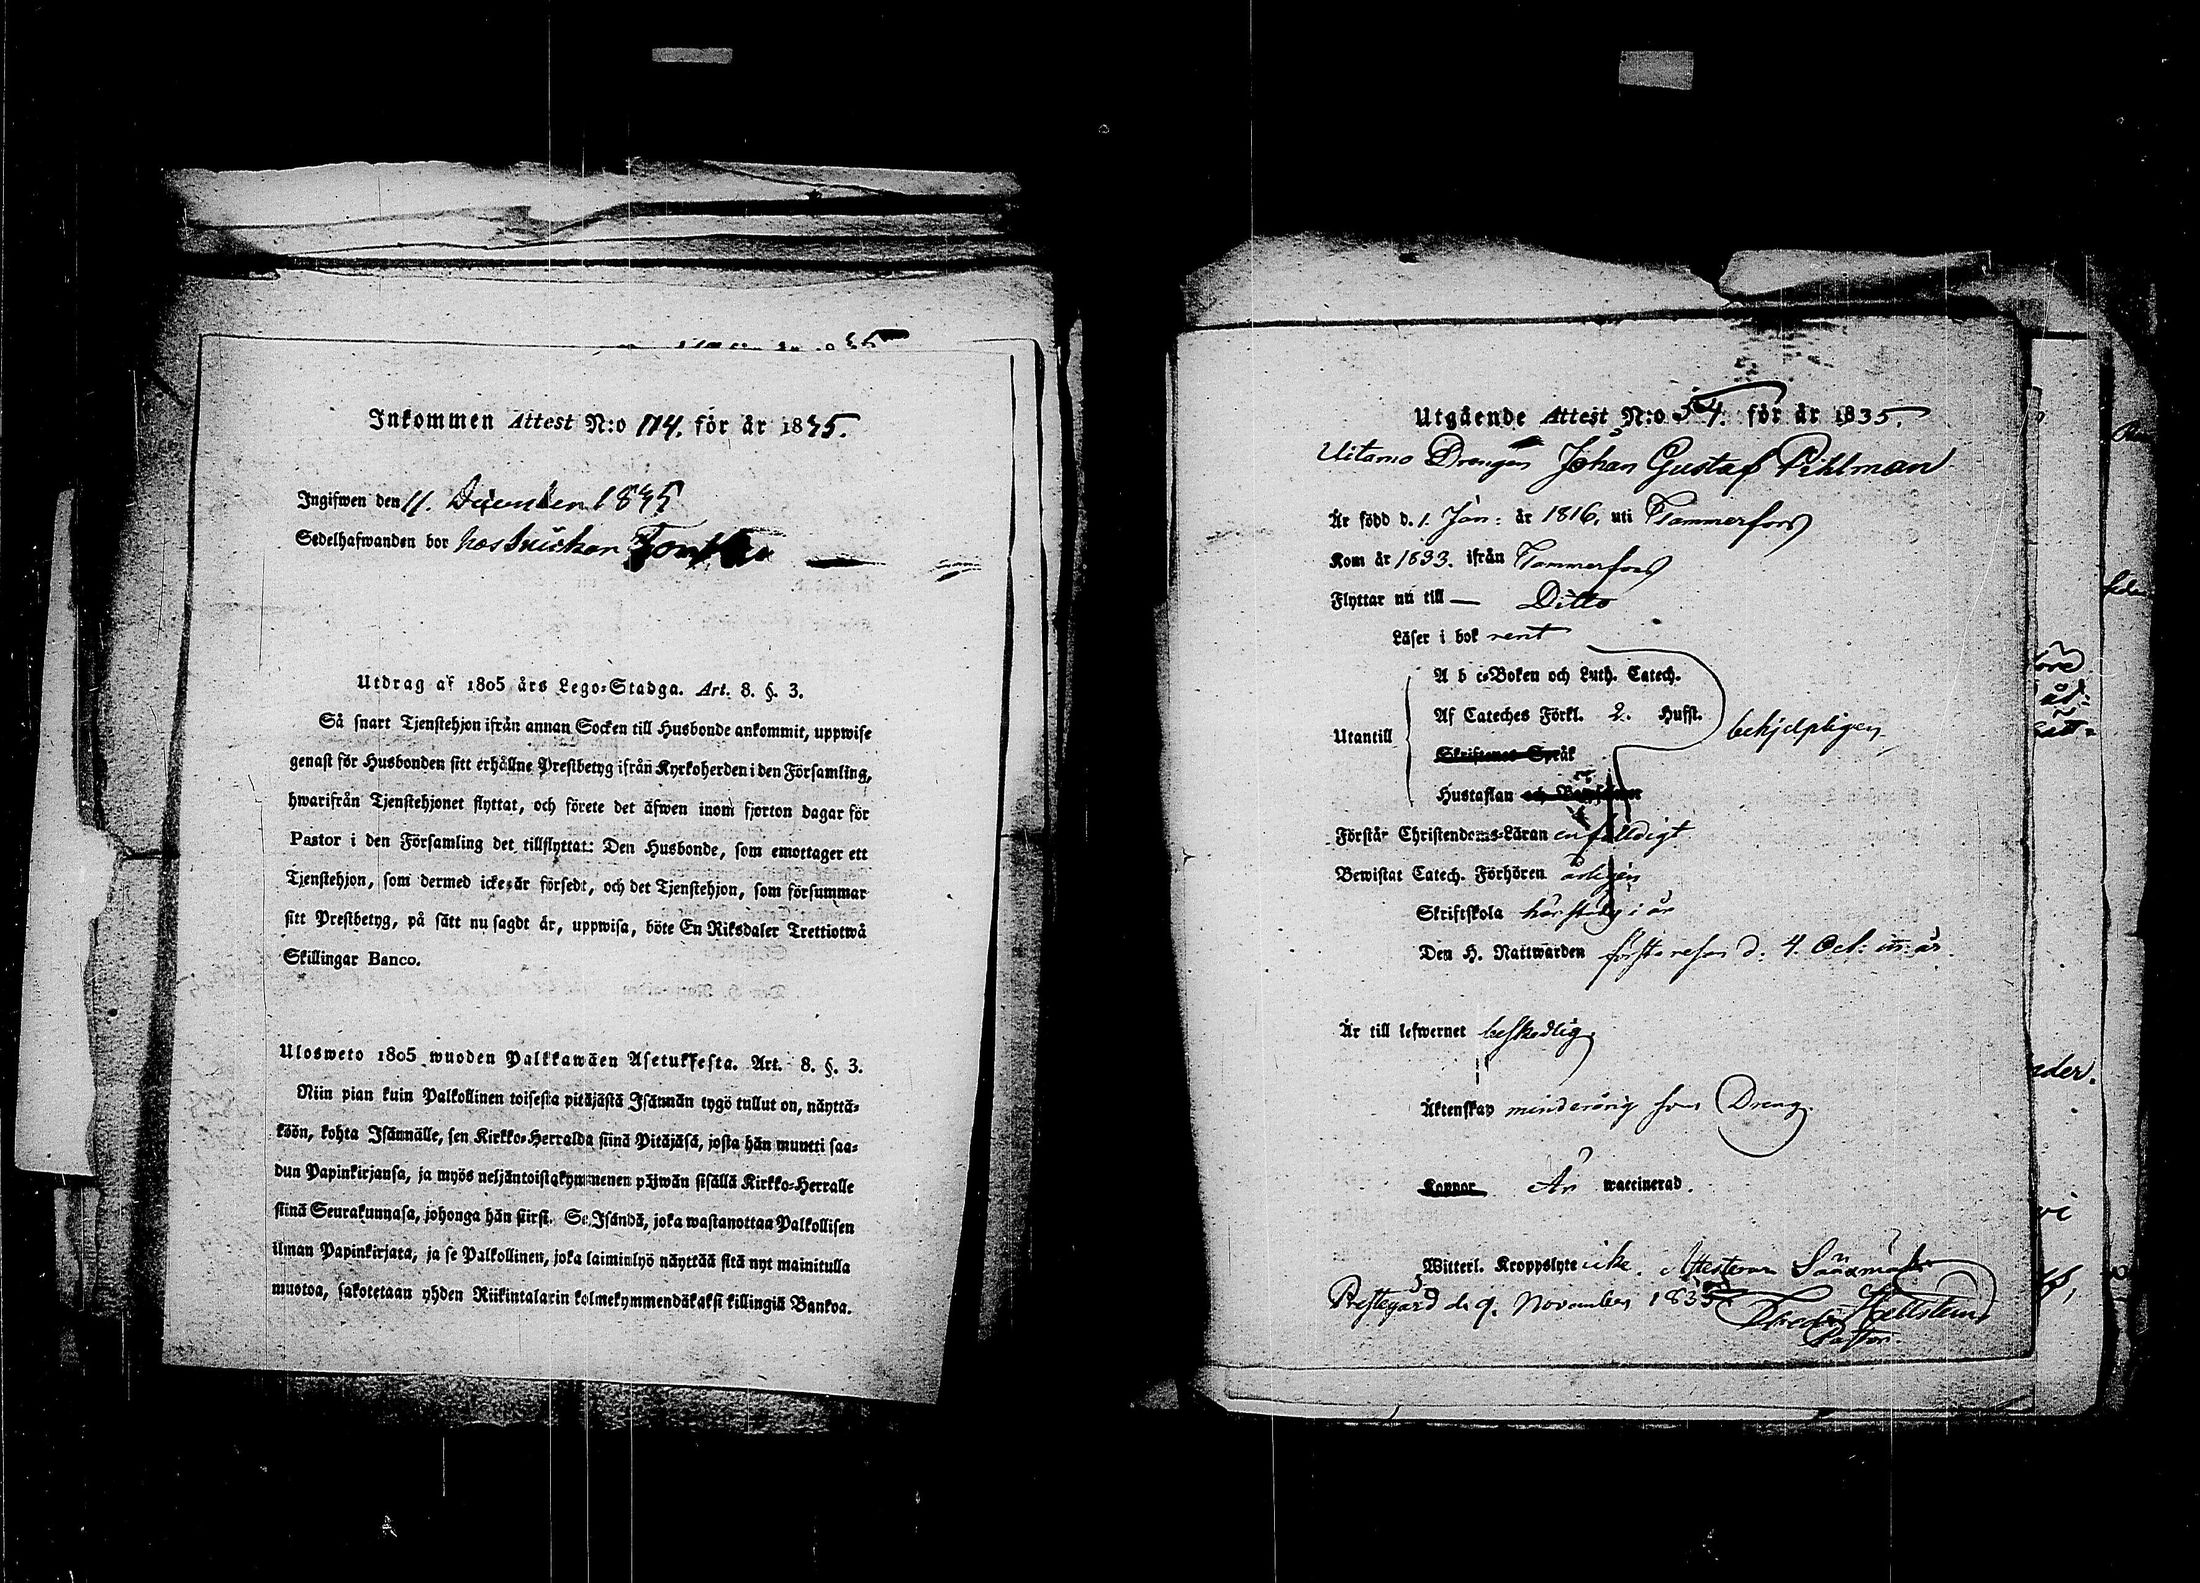 Inkommen Attest N:o 114. för år 1835.
Ingifwen den 11. December 1835
Sedelhafwanden bor hos
Utdrag af 1805 års Lego-Stadga. Art. 8. §. 3.
Så snart Tjenstehjon ifrån annan Socken till Husbonde ankommit, uppwise
genast för Husbonden sitt erhållne Prestbetyg ifrån Kyrkoherden i den Församling,
hwarifrån Tjenstehjonet flyttat, och förete det äfwen inom fjorton dagar för
Pastor i den Församling det tillflyttat: Den Husbonde, som emottager ett
Tjenstehjon, som dermed icke är försedt, och det Tjenstehjon, som försummar
sitt Prestbetyg, på sätt nu sagdt är, uppwisa, böte En Riksdaler Trettiotwå
Skillingar Banco.
Ulosweto 1805 wuoden Palkkawäen Asetuksesta. Art. 8. §. 3.
Niin pian kuin Palkollinen toisesta pitäjästä Isännän tygö tullut on, näyttä-
köön, kohta Isännälle, sen Kirkko-Herralda siinä Pitäjäsä, josta hän muutti saa-
dun Papinkirjansa, ja myös neljäntoistakymmenen päiwän sisällä Kirkko-Herralle
siinä Seurakunnasa, johonga hän siirsi. Se Isändä, joka wastanottaa Palkollisen
ilman Papinkirjata, ja se Palkollinen, joka laiminlyö näyttää sitä nyt mainitulla
muotoa, sakotetaan yhden Riikintalarin kolmekymmendäkaksi killingiä Bankoa.
Utgående Attest N:o 54. för år 1835.
Uitamo Drengen Johan Gustaf Pihlman
Är född d. 1. Jan: år 1816, uti Tammerfors
Kom år 1833. ifrån Tammerfors
Flyttar nu till — Ditto
Läser i bok rent
A b c-Boken och Luth. Catech.
Af Cateches Förkl. 2. Husst.
behjelpligen
Utantill
Skriftenes Språk
Hustaflan och
Förstår Christendoms-Läran enfaldigt
Bewistat Catech. Förhören årligen
Skriftskola härstädes i år
Den H. Nattwarden första resan d. 4. Oct: m: år.
Är till lefwernet beskedlig
Äktenskap minderårig som Dreng.
Koppor Är waccinerad.
Witterl. Kroppslyte icke. Attesteras Sääxmäki
Prestegård d. 9. November 1835
Hellstenius
Pastor.